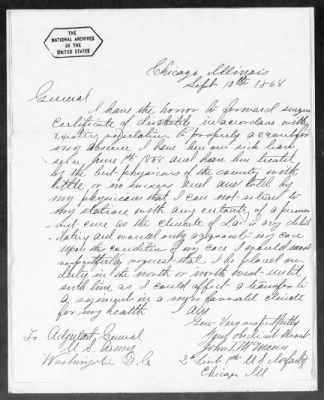 THE
NATIONAL ARCHIVES
OF THE
UNITED STATES
Chicago, Illinois
Sept 10th 1868
General
I have the honor to forward surgeon
certificate of disability in accordance with
existing regulations to properly account for
my absence I have been on sick leave
since June 1st 1868 and have been treated
by the best physicians of the country with
little or no success and am told by
my physicians that I can not return to
my station with any certainty of a perman
ent cure as the climate of La is very debil
itating and would only aggravate my case
upon the condition of my case I would most
respectfully request that I be placed on
duty in the north or north west until
such time as I could effect a transfer to
a regiment in a more favorable climate
for my health I am
Gen Very respectfully
Your obedient Servant
John J.
2d Lieut 1st U S Infantry
Chicago Ill
To Adjutant General
U S Army
Washington D. C.